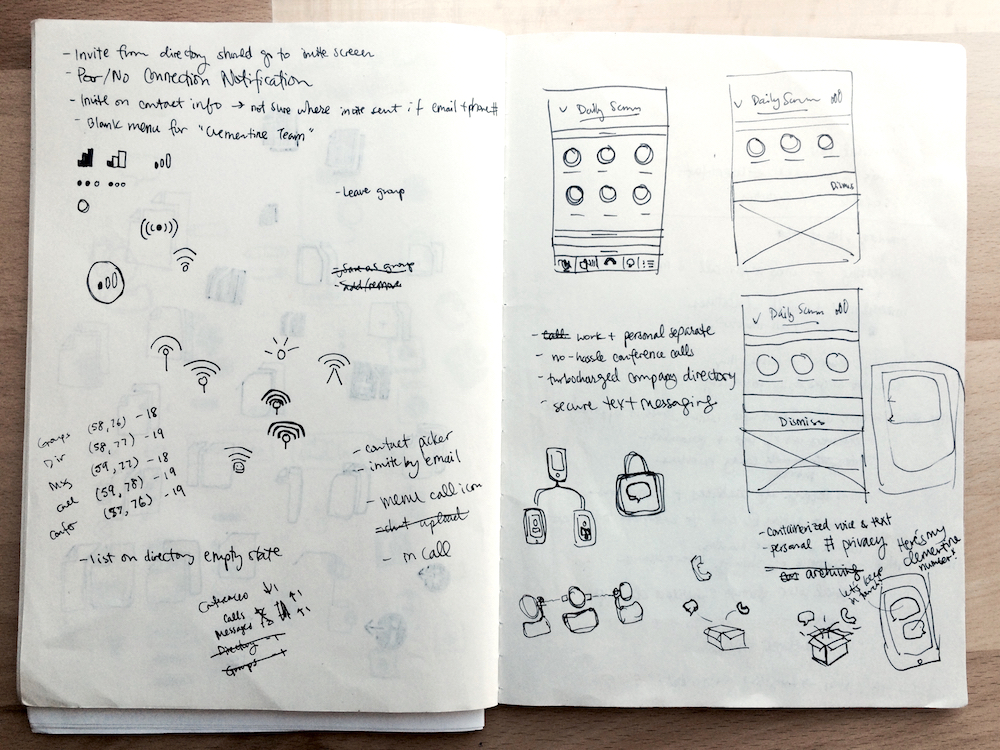 - Invite from directory should go to invite screen
- Poor/No Connection Notification
- Invite on contact info → not sure where invite sent if email + phone #
- Blank menu for "Clementine Team"
- Leave group
- Save as group
- add/remove
Groups (58, 76) - 18
Dir (58, 77) - 19
Msg (59, 77) - 18
Call (59, 78) - 19
Confer (57, 76) - 19
- contact picker
- invite by email
- menu call icon
- chat upload
- in call
- list on directory empty state
Calls
Messages
Directory
Groups
Daily Scrum
Daily Scrum
Dismiss
Daily Scrum
Dismiss
- Call work + personal separate
- no-hassle conference calls
- turbocharged company directory
- secure text messaging
- Containerized voice & text
- personal # privacy
archiving
Here's my
clementine
number!
Let's keep
in touch